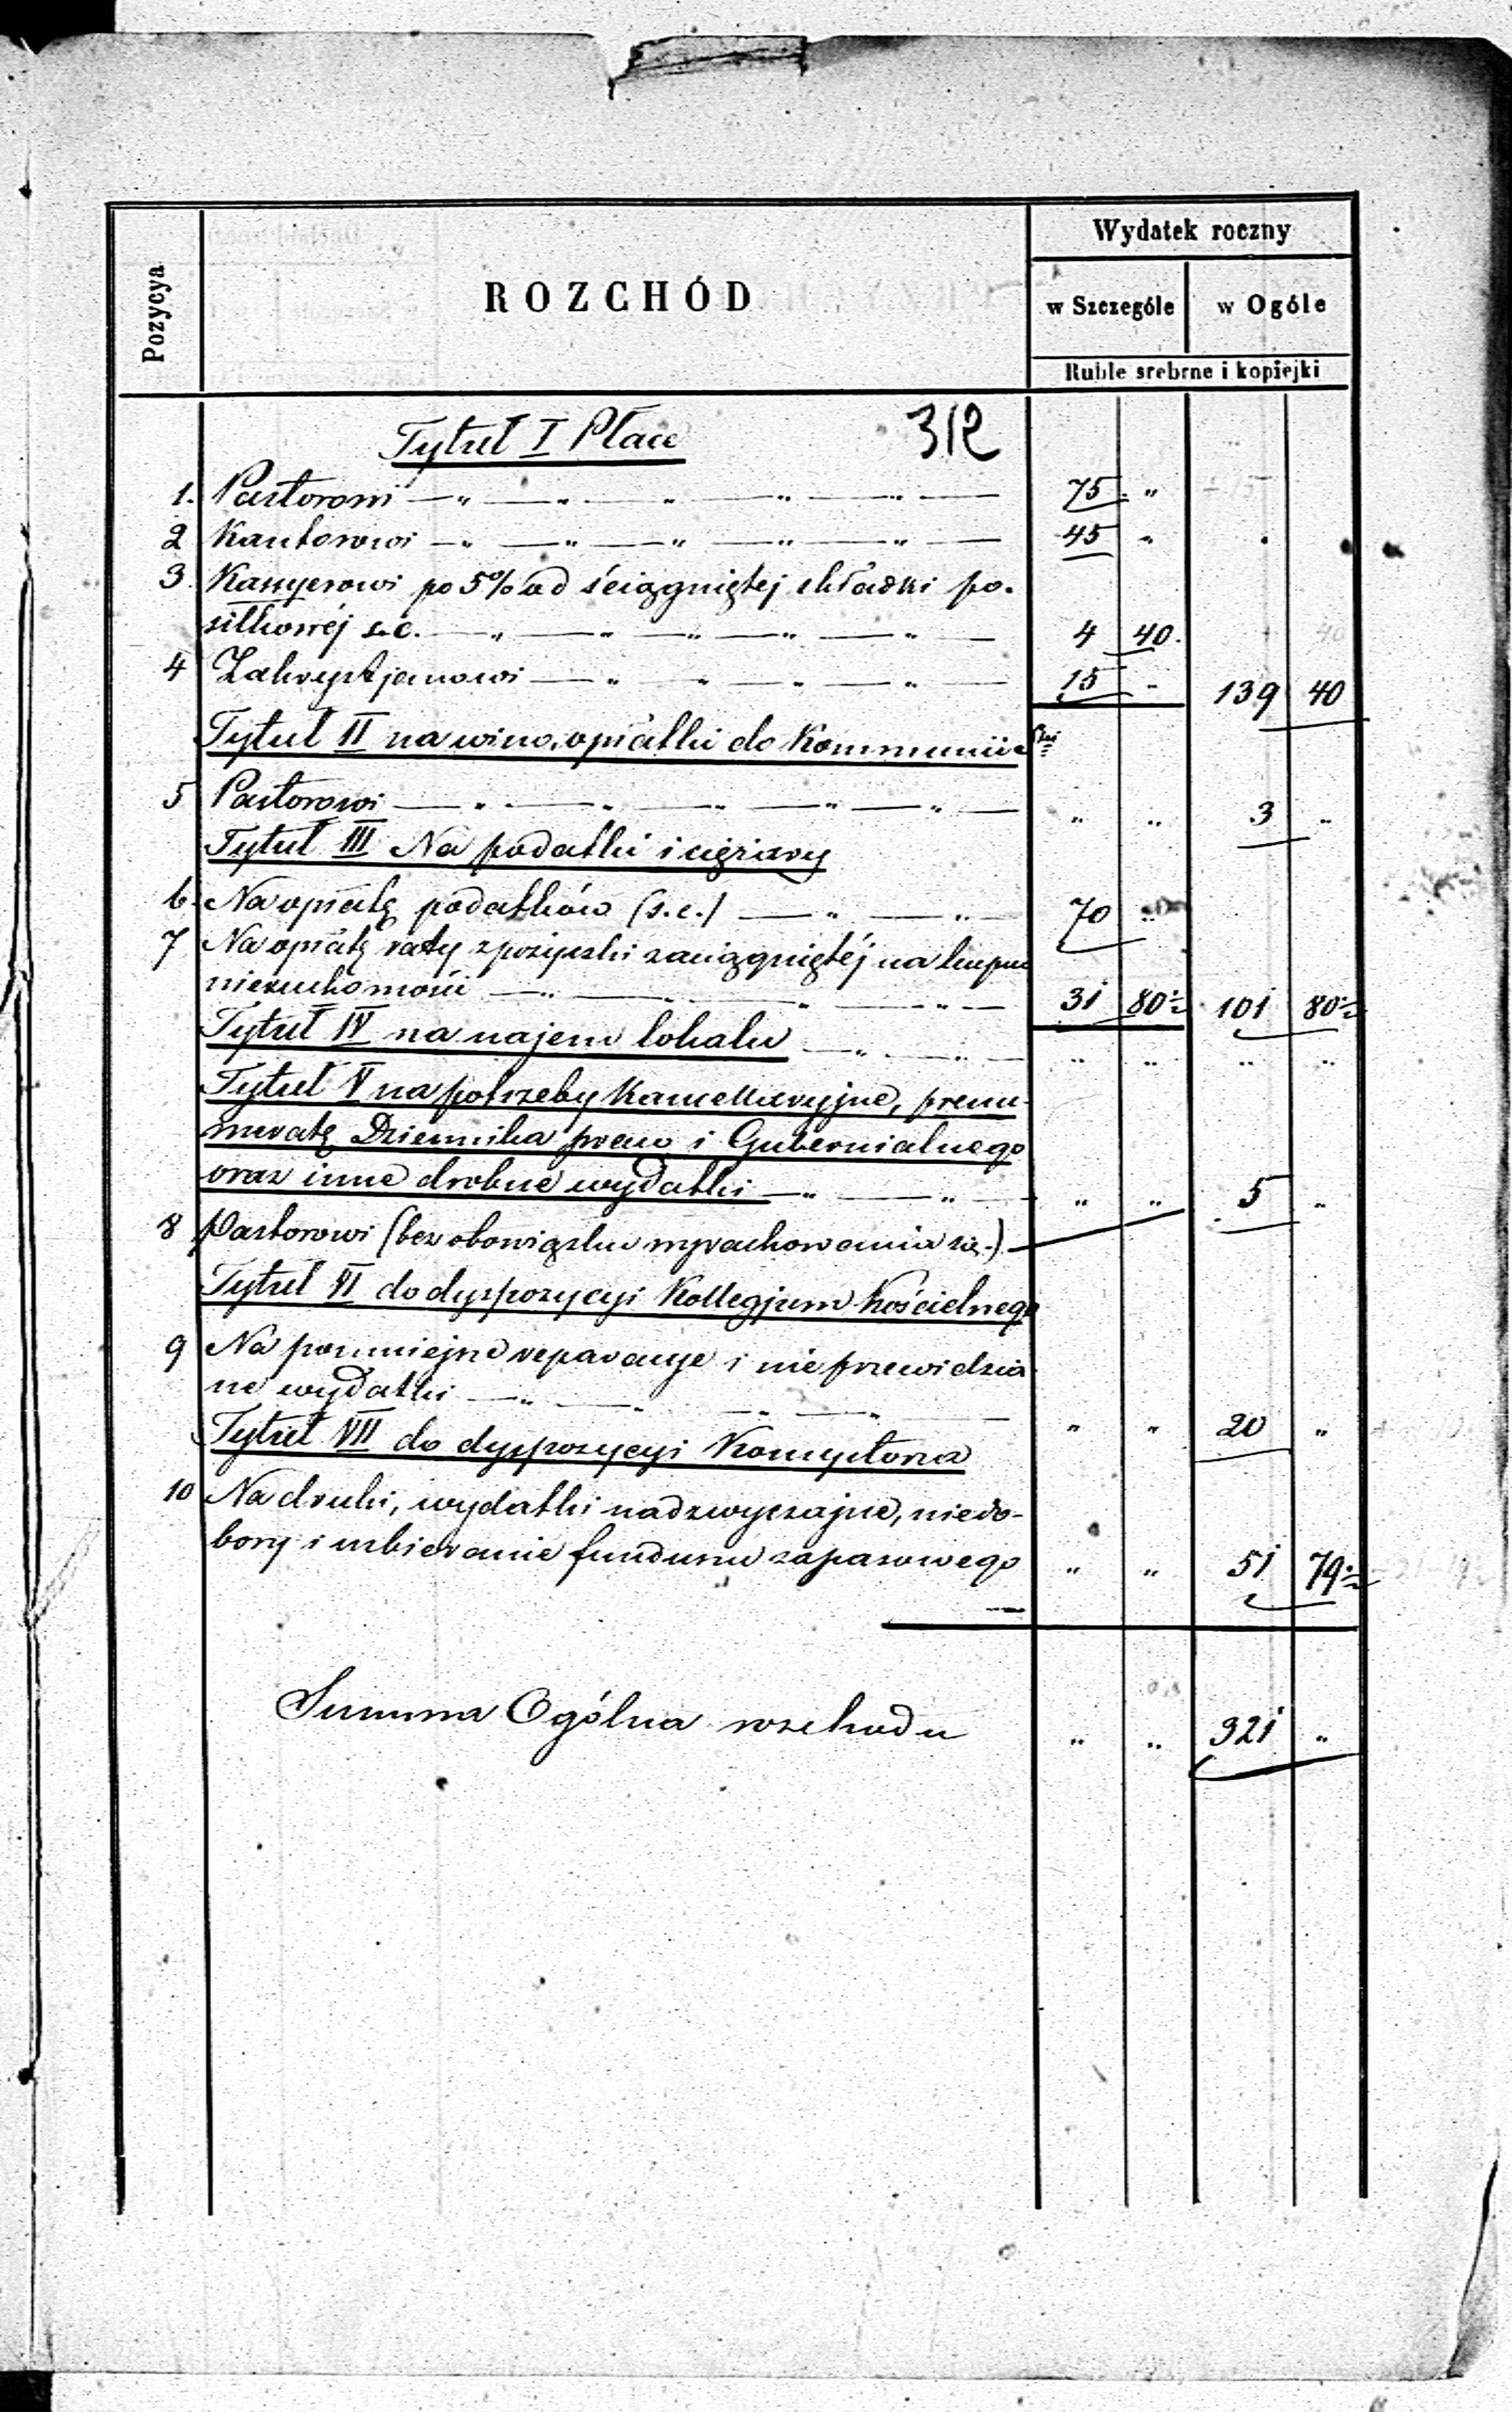 Pozycya
ROZCHÓD
Wydatek roczny
w Szczególe
w Ogóle
Ruble srebrne i kopiejki
Tytuł I Płace 312
1. Pastorowi 75 "
2 Kantorowi 45 "
3. Kassyerowi po 5% od ściągniętej składki po-
siłkowéj s.c. 4 40
4 Zakrystjanowi 15 " 139 40
Tytuł II na wino, opłatki do Kommunii
5 Pastorowi " " 3 "
Tytuł III Na podatki i ciężary
6. Na opłatę podatków (s.c.) 70 "
7 Na opłatę raty z pożyczki zaciągniętéj na kupno
nieruchomości 31 80½ 101 80½
Tytuł IV na najem lokalu " " " "
Tytuł V na potrzeby Kancellaryjne, prenu-
meratę Dziennika praw i Gubernialnego
oraz inne drobne wydatki " " 5 "
8 Pastorowi (bez obowiązku wyrachowania się.)
Tytuł VI do dyspozycyi Kollegjum Kościelnego
9 Na pomniejsze reparacye i nieprzewidzia-
ne wydatki " " 20 "
Tytuł VII do dyspozycyi Konsystorza
10 Na druki, wydatki nadzwyczajne, niedo-
bory i uzbieranie funduszu zapasowego " " 51 79½
Summa Ogólna rozchodu " " 321 "